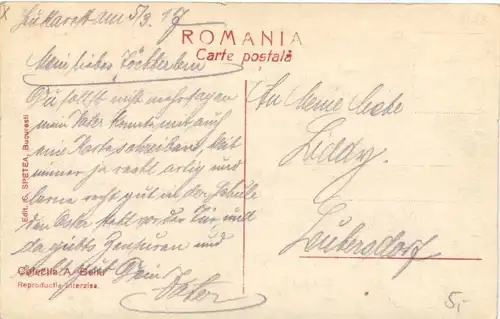 Bukarest am 5/3. 17
ROMANIA
Carte postală
Mein liebes Töchterlein
Du sollst nicht mehr sagen
mein Vater könnte mir auch
eine Karte schreiben. Sei
immer ja recht artig und
lerne recht gut in der Schule
den Oster steht vor der Tür und
da giebts Zensuren und
Dein
Vater
An Meine liebe
Liddy.
Leubersdorf
Edit. G. SPETEA, Bucuresti
Colecția A. Bellu
Reproductia interzisa.
5,-